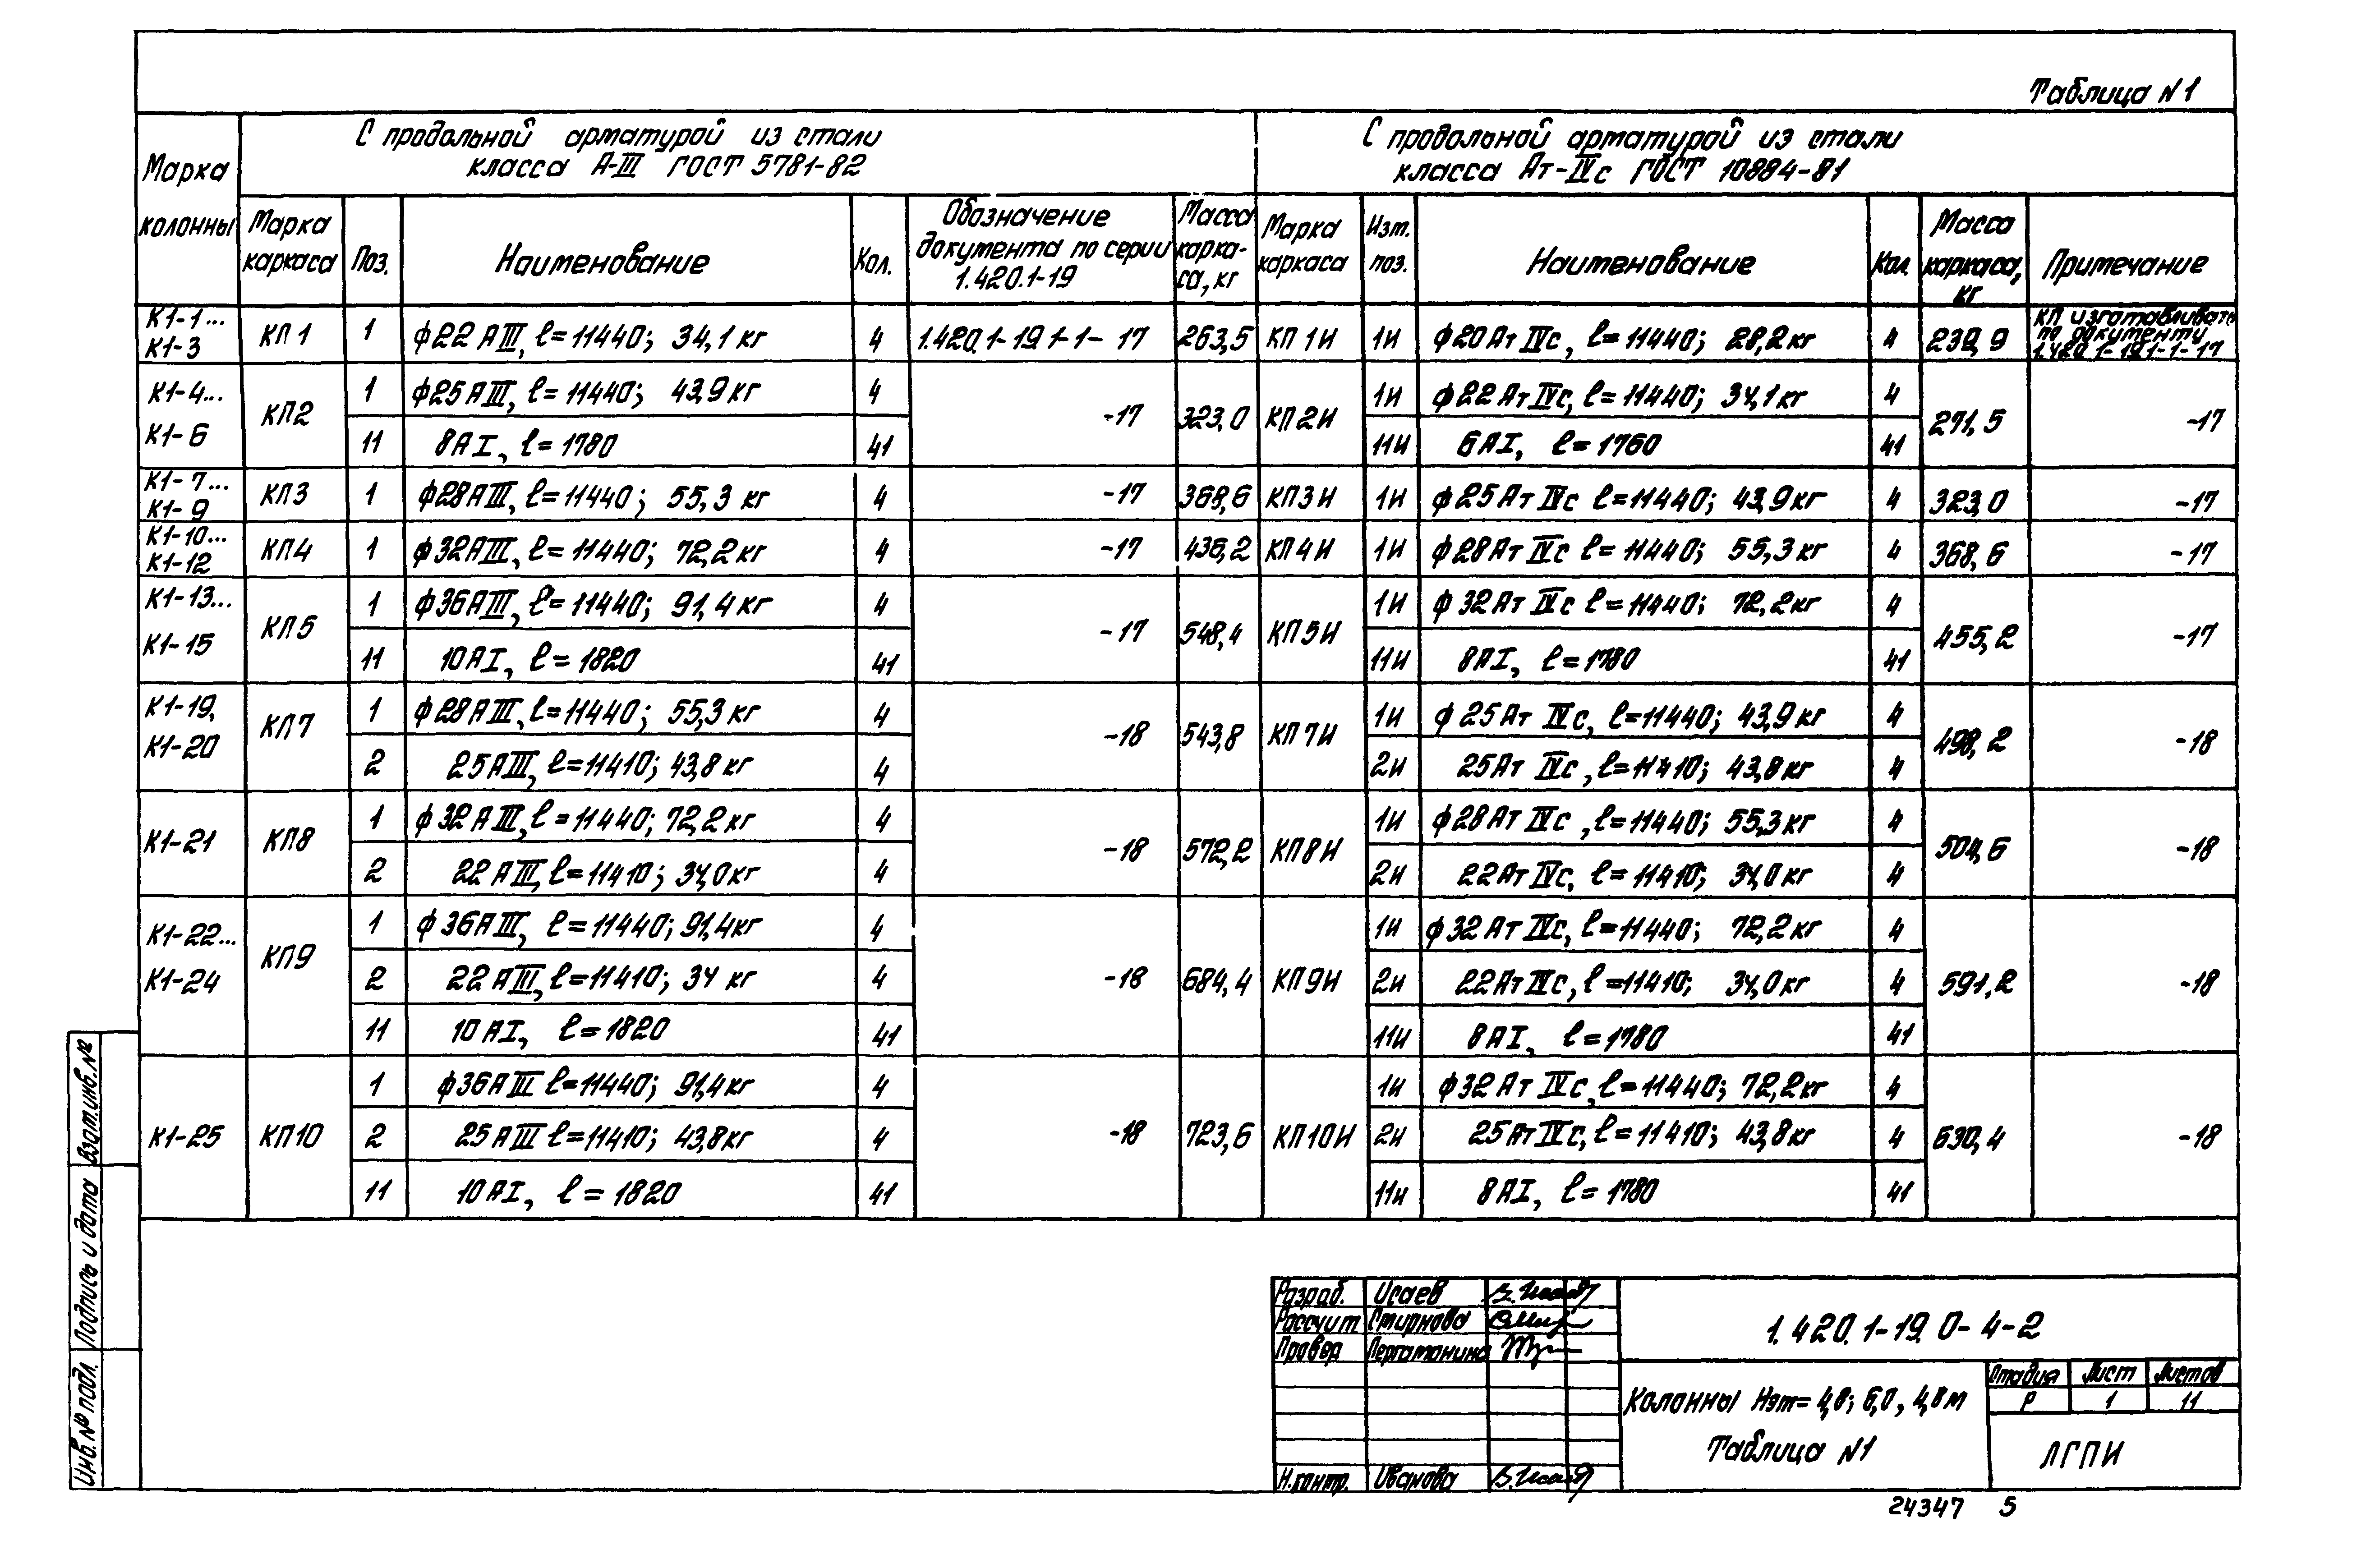 Таблица N1
Марка колонны
С продольной арматурой из стали
класса А-III ГОСТ 5781-82
С продольной арматурой из стали
класса Ат-IVс ГОСТ 10884-81
Марка каркаса
Поз.
Наименование
Кол.
Обозначение документа по серии 1.420.1-19
Масса карка-са, кг
Марка каркаса
Изм. поз.
Наименование
Кол
Масса каркаса, кг
Примечание
К1-1... К1-3 КП1 1 ф22 АIII, ℓ=11440; 34,1кг 4 1.420.1-19 1-1-17 263,5 КП1И 1и ф20Ат IVс, ℓ=11440; 28,2кг 4 239,9 КП изготавливать по документу 1.420.1-19.1-1-17
К1-4... К1-6 КП2 1 ф25АIII, ℓ=11440; 43,9кг 4 -17 323,0 КП2И 1и ф22Ат IVс, ℓ=11440; 34,1кг 4 271,5 -17
11 8АI, ℓ=1780 41 11и 6АI, ℓ=1760 41
К1-7... К1-9 КП3 1 ф28АIII, ℓ=11440; 55,3 кг 4 -17 368,6 КП3И 1и ф25Ат IVс ℓ=11440; 43,9кг 4 323,0 -17
К1-10... К1-12 КП4 1 ф32АIII, ℓ=11440; 72,2кг 4 -17 436,2 КП4И 1и ф28Ат IVс ℓ=11440; 55,3кг 4 368,6 -17
К1-13... К1-15 КП5 1 ф36АIII, ℓ=11440; 91,4кг 4 -17 548,4 КП5И 1и ф32Ат IVс ℓ=11440; 72,2кг 4 455,2 -17
11 10АI, ℓ=1820 41 11и 8АI, ℓ=1780 41
К1-19, К1-20 КП7 1 ф28АIII, ℓ=11440; 55,3кг 4 -18 543,8 КП7И 1и ф25Ат IVс, ℓ=11440; 43,9кг 4 498,2 -18
2 25АIII, ℓ=11410; 43,8кг 4 2и 25Ат IVс, ℓ=11410; 43,8кг 4
К1-21 КП8 1 ф32АIII, ℓ=11440; 72,2кг 4 -18 572,2 КП8И 1и ф28Ат IVс, ℓ=11440; 55,3кг 4 504,6 -18
2 22АIII, ℓ=11410; 34,0кг 4 2и 22Ат IVс, ℓ=11410; 34,0кг 4
К1-22... К1-24 КП9 1 ф36АIII, ℓ=11440; 91,4кг 4 -18 684,4 КП9И 1и ф32Ат IVс, ℓ=11440; 72,2кг 4 591,2 -18
2 22АIII, ℓ=11410; 34 кг 4 2и 22Ат IVс, ℓ=11410; 34,0кг 4
11 10АI, ℓ=1820 41 11и 8АI, ℓ=1780 41
К1-25 КП10 1 ф36АIII ℓ=11440; 91,4кг 4 -18 723,6 КП10И 1и ф32Ат IVс, ℓ=11440; 72,2кг 4 630,4 -18
2 25АIII ℓ=11410; 43,8кг 4 2и 25Ат IVс, ℓ=11410; 43,8кг 4
11 10АI, ℓ=1820 41 11и 8АI, ℓ=1780 41
Взам.инв.№
Подпись и дата
Инв.№ подл.
Разраб. Исаев
Рассчит. Смирнова
Провер Пергаменина
Н.контр. Иванова
1.420.1-19.0-4-2
Колонны Нэт=4,8; 6,0, 4,8м
Таблица N1
Стадия Лист Листов
Р 1 11
ЛГПИ
24347 5